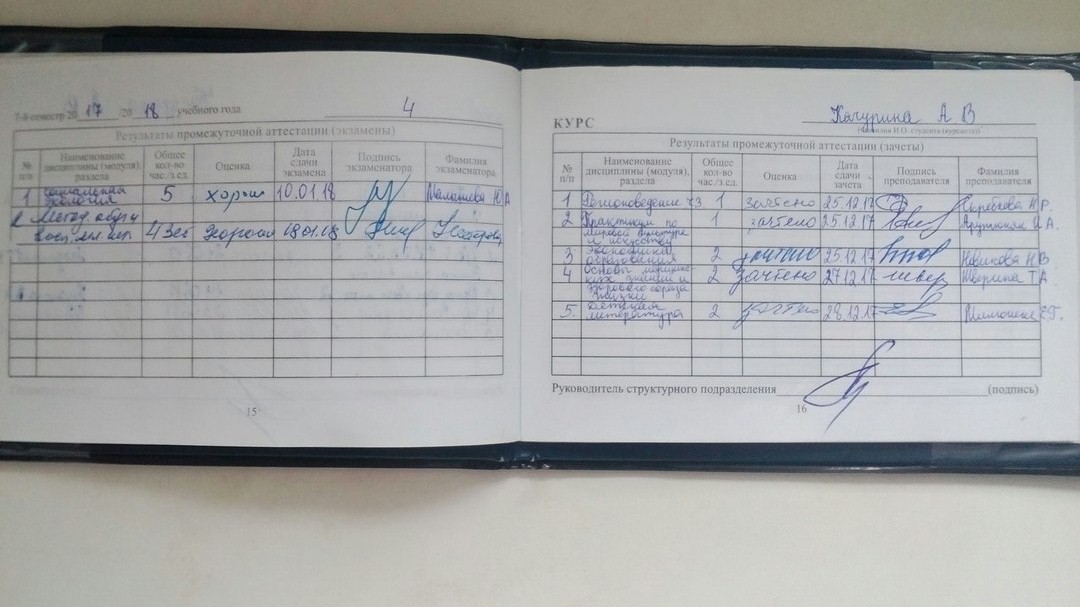 7-й семестр 2017/2018 учебного года 4
Результаты промежуточной аттестации (экзамены)
№ п/п Наименование дисциплины (модуля), раздела Общее кол-во час./з.ед. Оценка Дата сдачи экзамена Подпись экзаменатора Фамилия экзаменатора
1 Социальная экология 5 хорош 10.01.18
4 хорошо 18.01.18
15
КУРС Качурина А В
(Фамилия И.О. студента (курсанта))
Результаты промежуточной аттестации (зачеты)
№ п/п Наименование дисциплины (модуля), раздела Общее кол-во час./з.ед. Оценка Дата сдачи зачета Подпись преподавателя Фамилия преподавателя
1 Регионоведение ч3 1 зачтено 25.12.17
2 Практикум по мировой культуре и искусству 1 зачтено 25.12.17
3 Экономика образования 2 зачтено 25.12.17 Новикова Н В
4 Основы медицинских знаний и здорового образа жизни 2 зачтено 27.12.17
5. Детская литература 2 зачтено 28.12.17
Руководитель структурного подразделения (подпись)
16